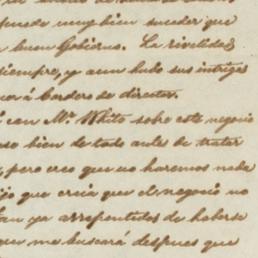 puede muy bien suceder que
buen Gobierno. La rivalidad
siempre, y aun hubo sus intrigas
á bordero de director.
con Mr. White sobre este negocio
se bien de todo antes de tratar
, pero creo que no haremos nada
dijo que creia que el negocio no
tan ya arrepentidos de haberse
que me buscará despues que